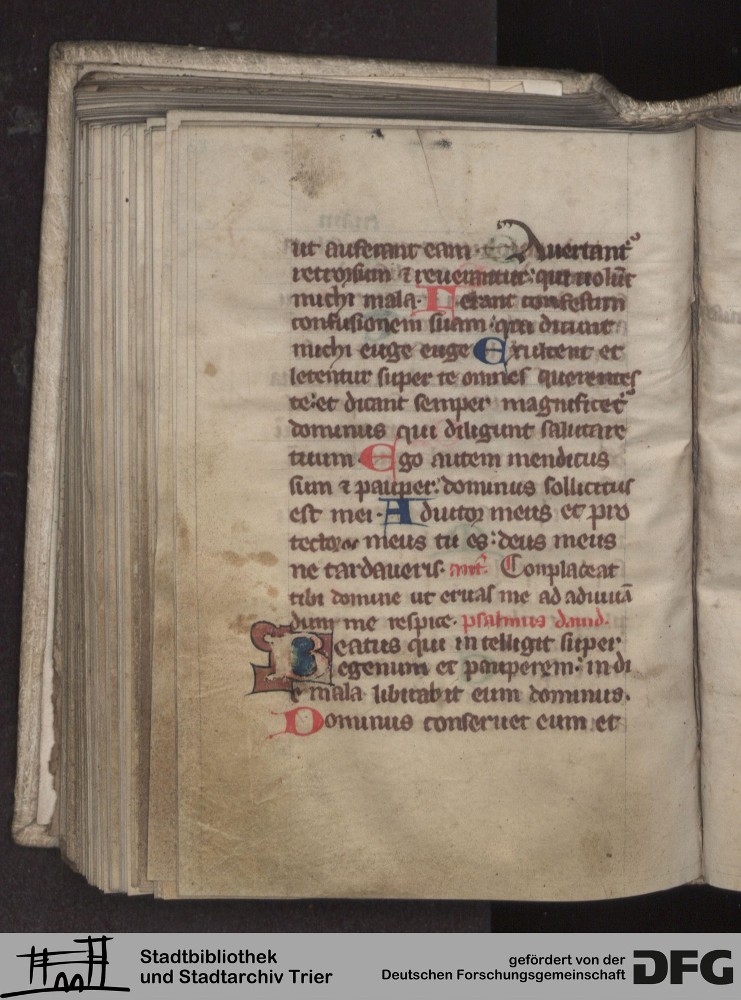 ut auferant eam. Auertant᷑
retrorsum ⁊ reuereantur: qui uolūt
michi mala. Ferant confestim
confusionem suam: qui dicunt
michi euge euge Exultent et
letentur super te omnes querentes
te: et dicant semper magnificet᷑
dominus qui diligunt salutare
tuum Ego autem mendicus
sum ⁊ pauper: dominus sollicitus
est mei. Adiutor meus et pro
tector meus tu es: deus meus
ne tardaueris. ant̄. Conplaceat
tibi domine ut eruas me ad adiuuā
dum me respice. psalmus dauid.
Beatus qui intelligit super
egenum et pauperem: in di
e mala libitabit eum dominus.
Dominus conseruet eum et
Stadtbibliothek
und Stadtarchiv Trier
gefördert von der
Deutschen Forschungsgemeinschaft
DFG